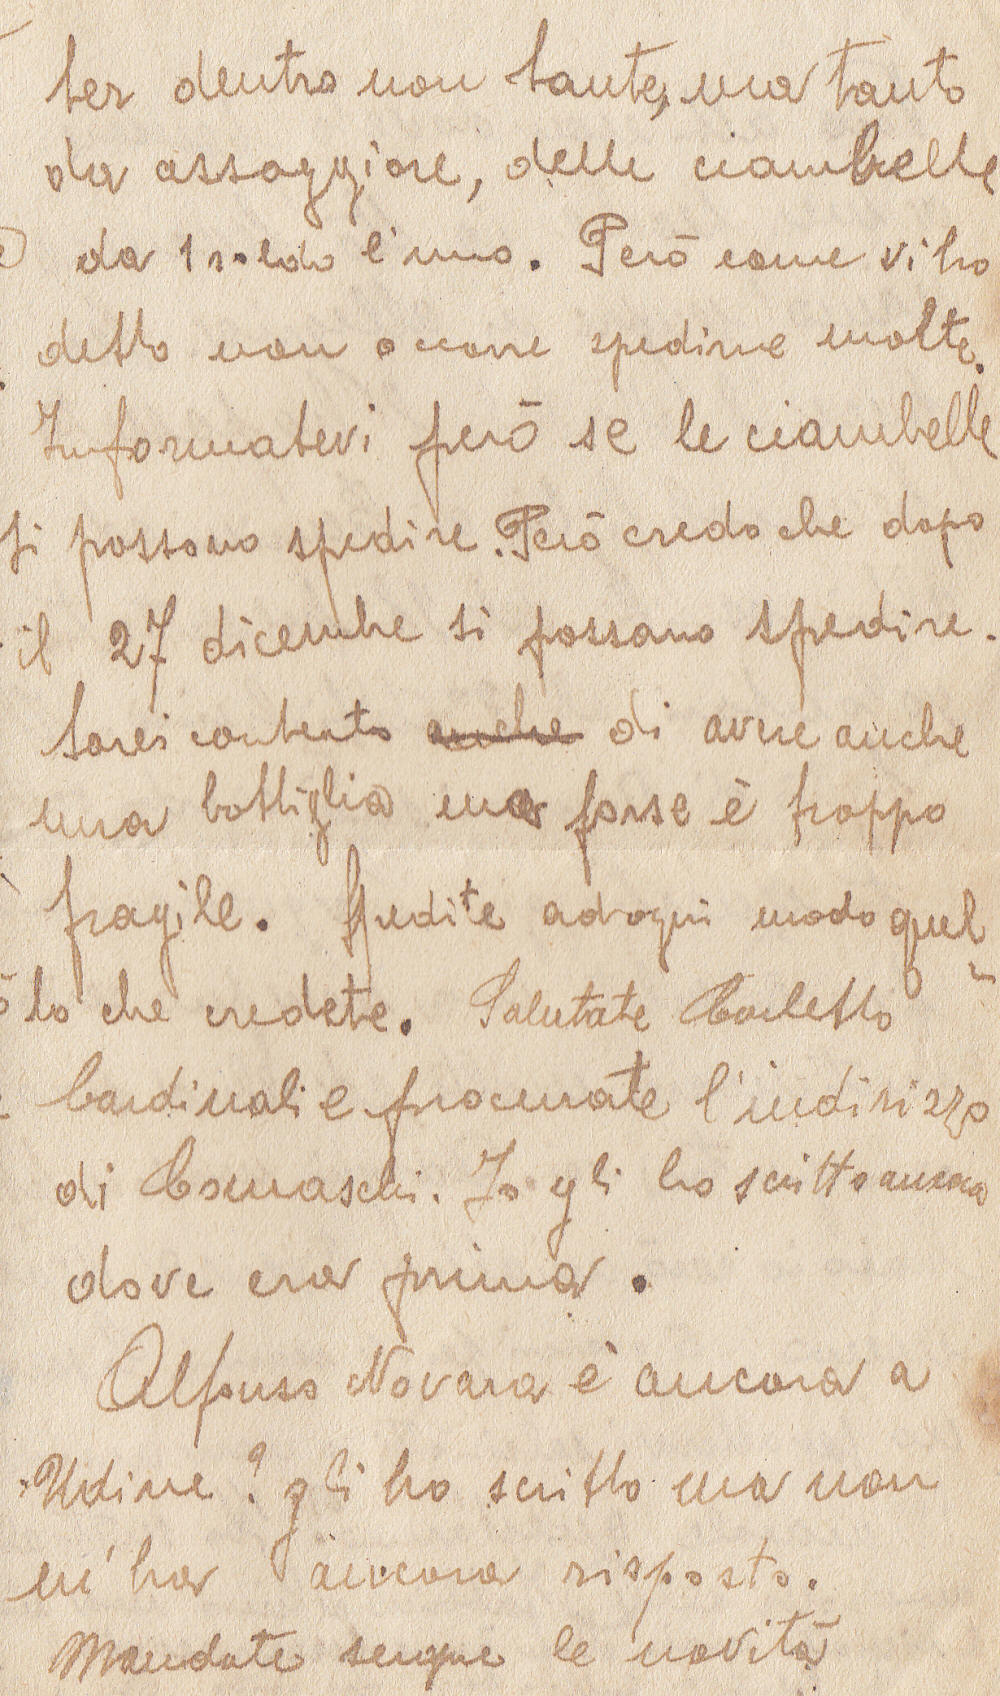 ter dentro non tante, ma tanto
da assaggiare, delle ciambelle
da 1 soldo l'uno. Però come vi ho
detto non occorre spedirne molte.
Informatevi però se le ciambelle
si possono spedire. Però credo che dopo
il 27 dicembre si possano spedire.
Sarei contento anche di avere anche
una bottiglia ma forse è troppo
fragile. Spedite ad ogni modo quel-
lo che credete. Salutate Carletto
Cardinali e procurate l'indirizzo
di Comaschi. Io gli ho scritto ancora
dove era prima.
Alfonso Novara è ancora a
Udine? gli ho scritto ma non
m'ha ancora risposto.
Mandate sempre le novità